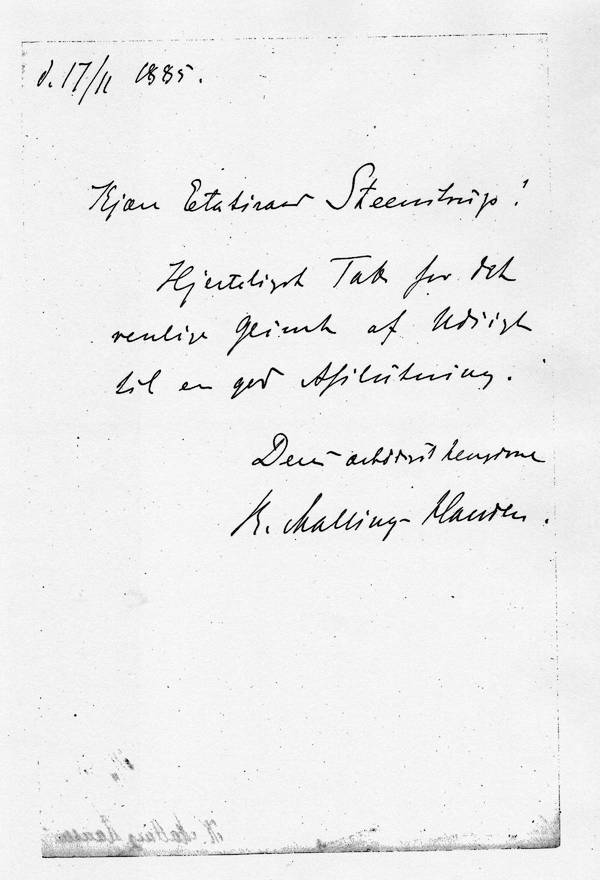 d. 17/11 1885.
Kjære Etatsraad Steenstrup!
Hjerteligst Tak for det
venlige Glimt af Udsigt
til en god Afslutning.
Deres ærbødigst hengivne
R. Malling-Hansen.
R. Malling Hansen